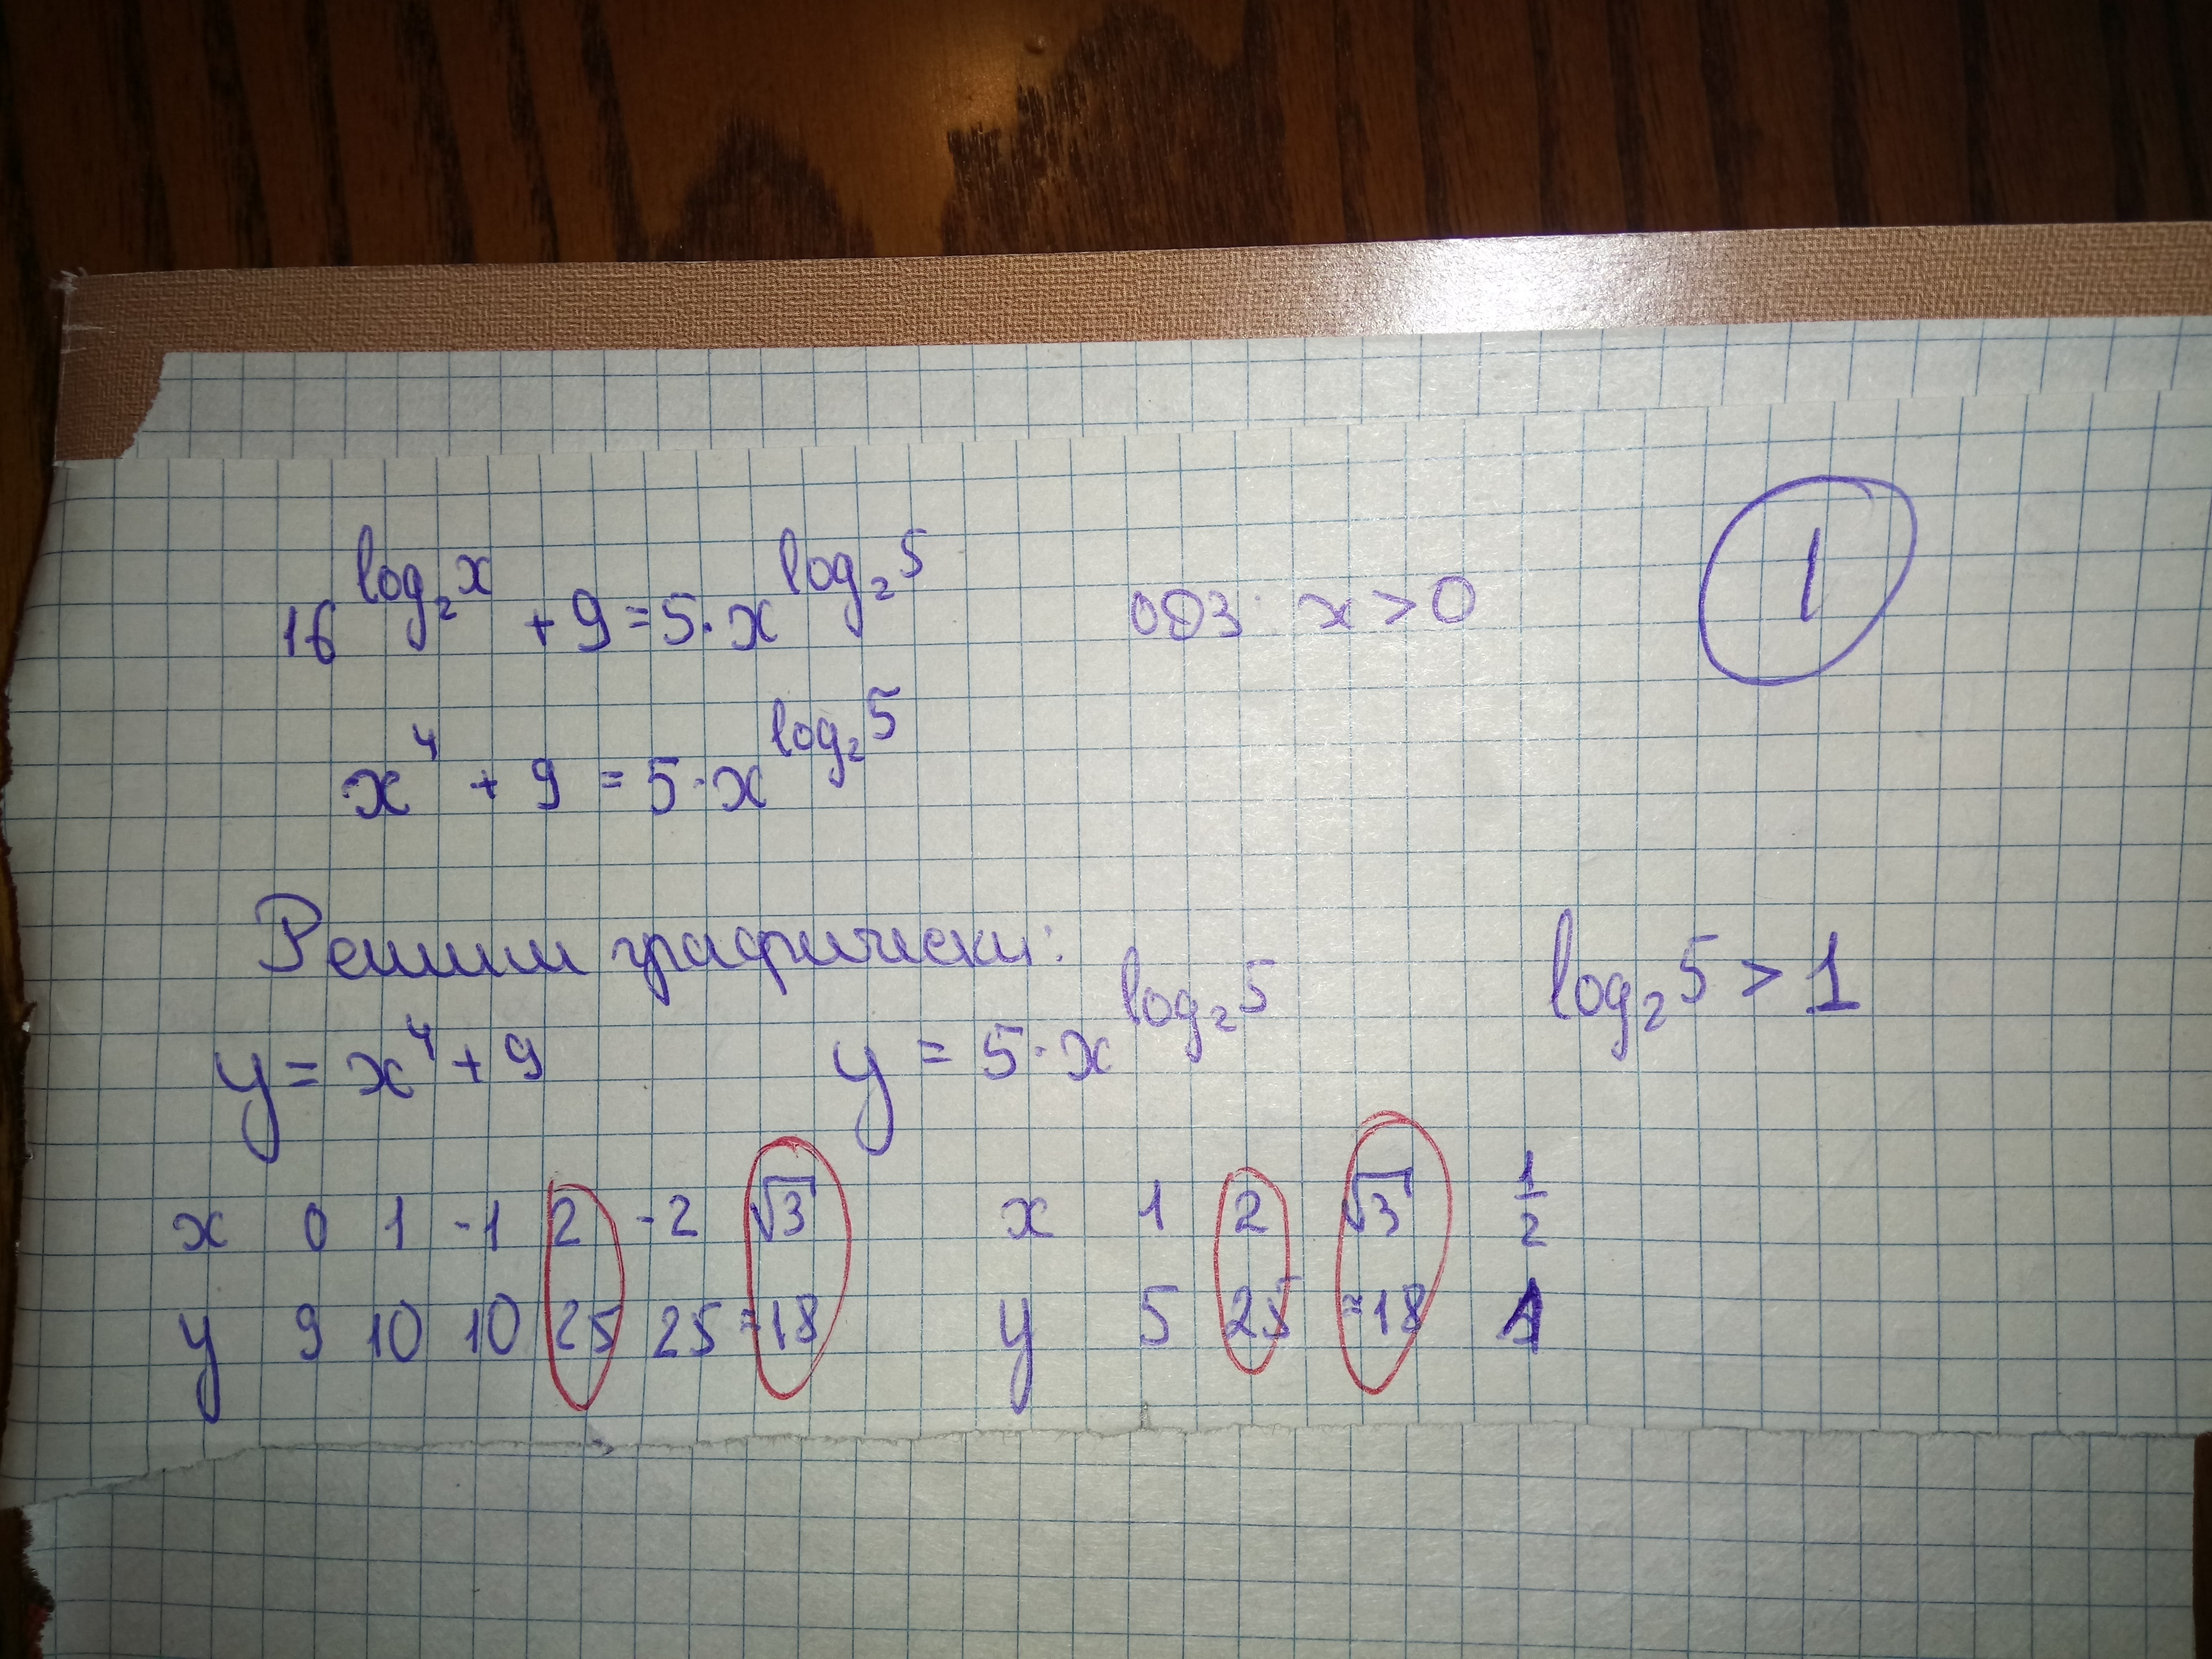 16^{log_2 x} + 9 = 5 · x^{log_2 5} ОДЗ: x > 0 1
x^4 + 9 = 5 · x^{log_2 5}
Решим графически:
y = x^4 + 9 y = 5 · x^{log_2 5} log_2 5 > 1
x 0 1 -1 2 -2 √3 x 1 2 √3 1/2
y 9 10 10 25 25 ≈18 y 5 25 ≈18 1